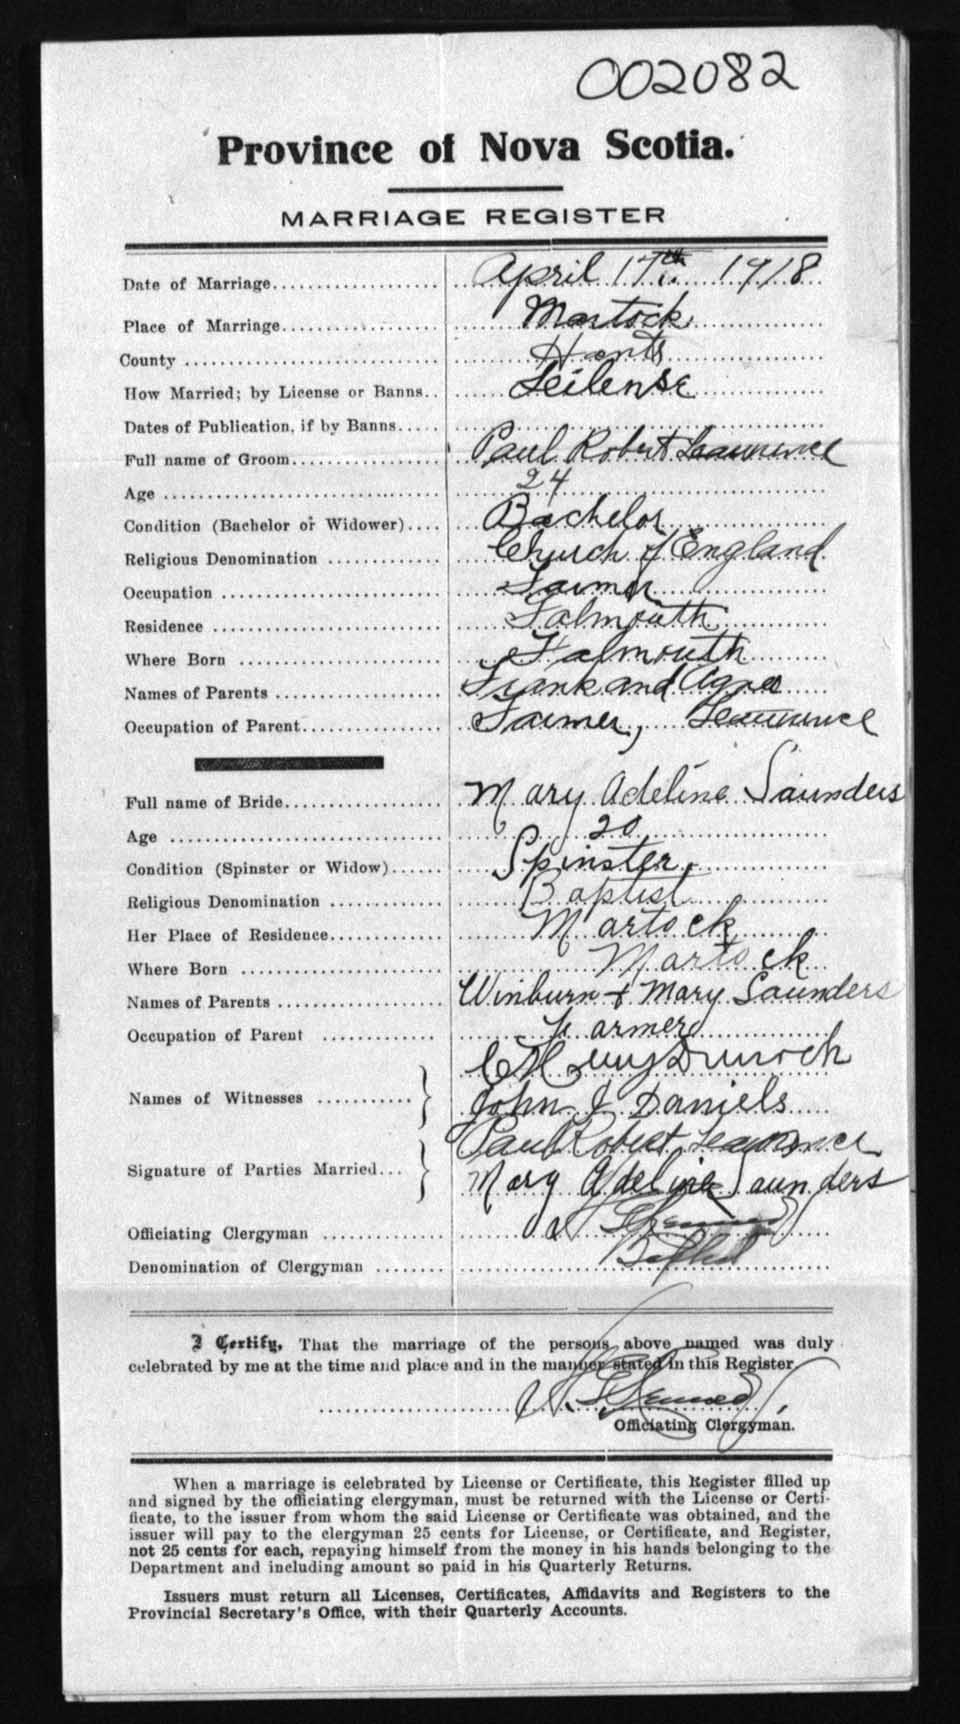 002082
Province of Nova Scotia.
MARRIAGE REGISTER
Date of Marriage.................... April 17th 1918
Place of Marriage................... Martock
County ............................ Hants
How Married; by License or Banns.. Leilense
Dates of Publication, if by Banns.....
Full name of Groom................. Paul Robert Leaurence
Age ............................... 24
Condition (Bachelor or Widower).... Bachelor
Religious Denomination ............. Church of England
Occupation ......................... Farmer
Residence .......................... Falmouth
Where Born ........................ Falmouth
Names of Parents ................... Frank and Agnes
Occupation of Parent................ Farmer, Leaurence
Full name of Bride.................. Mary Adeline Saunders
Age ............................... 20
Condition (Spinster or Widow)...... Spinster
Religious Denomination ............. Baptist
Her Place of Residence.............. Martock
Where Born ........................ Martock
Names of Parents ................... Winburn + Mary Saunders
Occupation of Parent .............. Farmer
Names of Witnesses ...........
John J Daniels
Signature of Parties Married... Paul Robert
Mary Adeline Saunders
Officiating Clergyman ..............
Denomination of Clergyman ........ Baptist
I Certify, That the marriage of the persons above named was duly
celebrated by me at the time and place and in the manner stated in this Register
Officiating Clergyman.
When a marriage is celebrated by License or Certificate, this Register filled up
and signed by the officiating clergyman, must be returned with the License or Certi-
ficate, to the issuer from whom the said License or Certificate was obtained, and the
issuer will pay to the clergyman 25 cents for License, or Certificate, and Register,
not 25 cents for each, repaying himself from the money in his hands belonging to the
Department and including amount so paid in his Quarterly Returns.
Issuers must return all Licenses, Certificates, Affidavits and Registers to the
Provincial Secretary's Office, with their Quarterly Accounts.